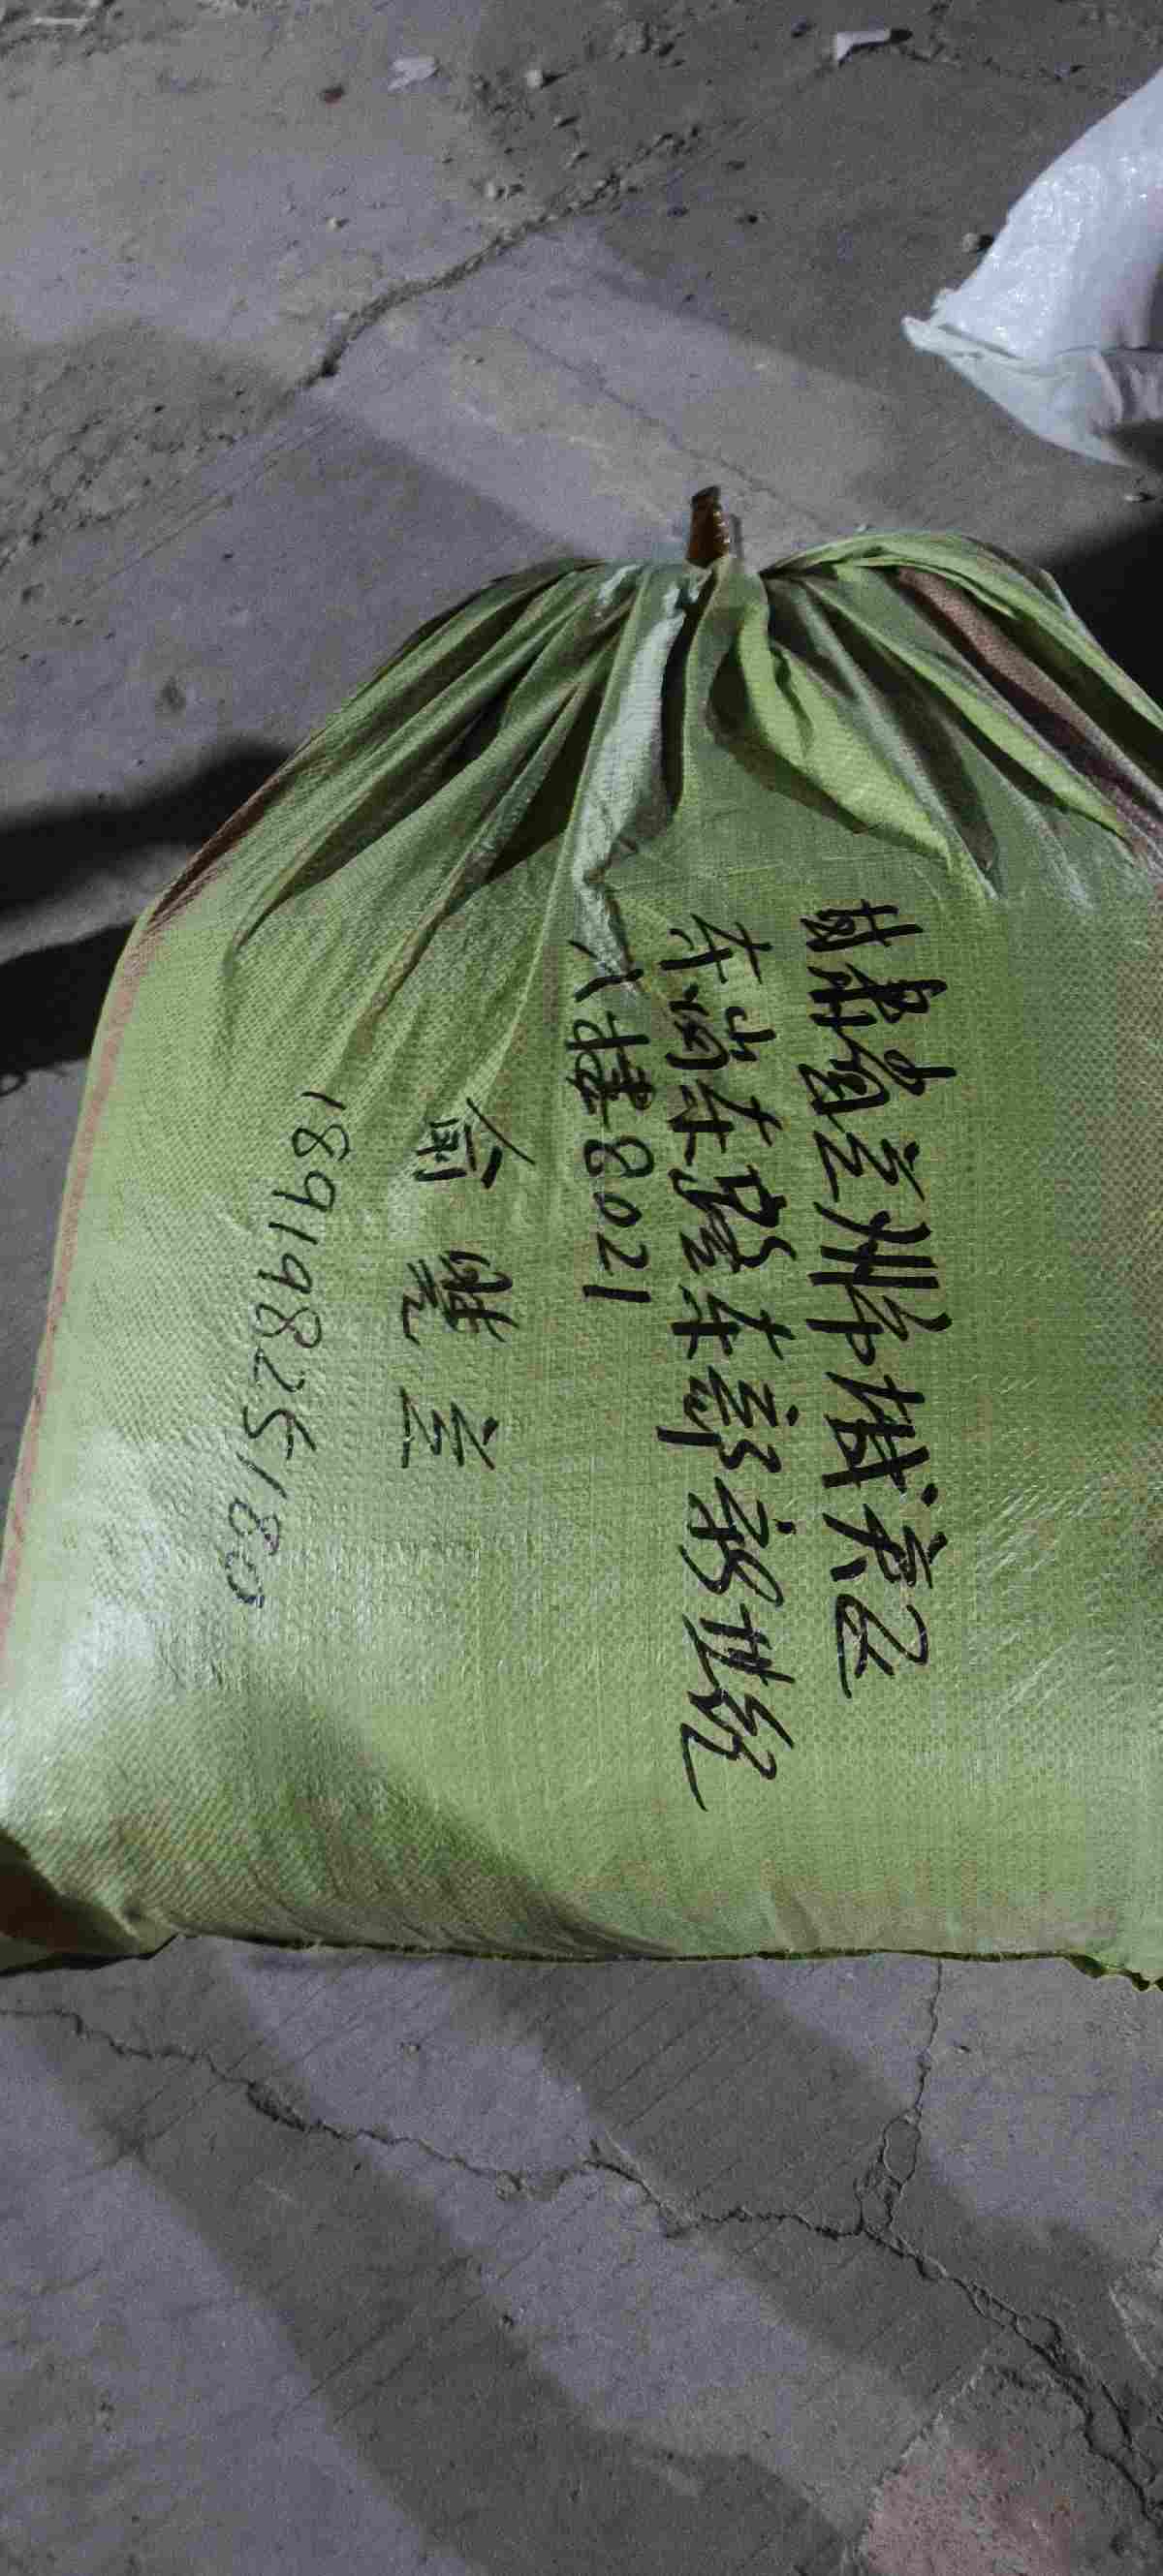 甘肃省兰州市城关区
东岗东路东部新世纪
八撞8021
俞晓兰
18919825180